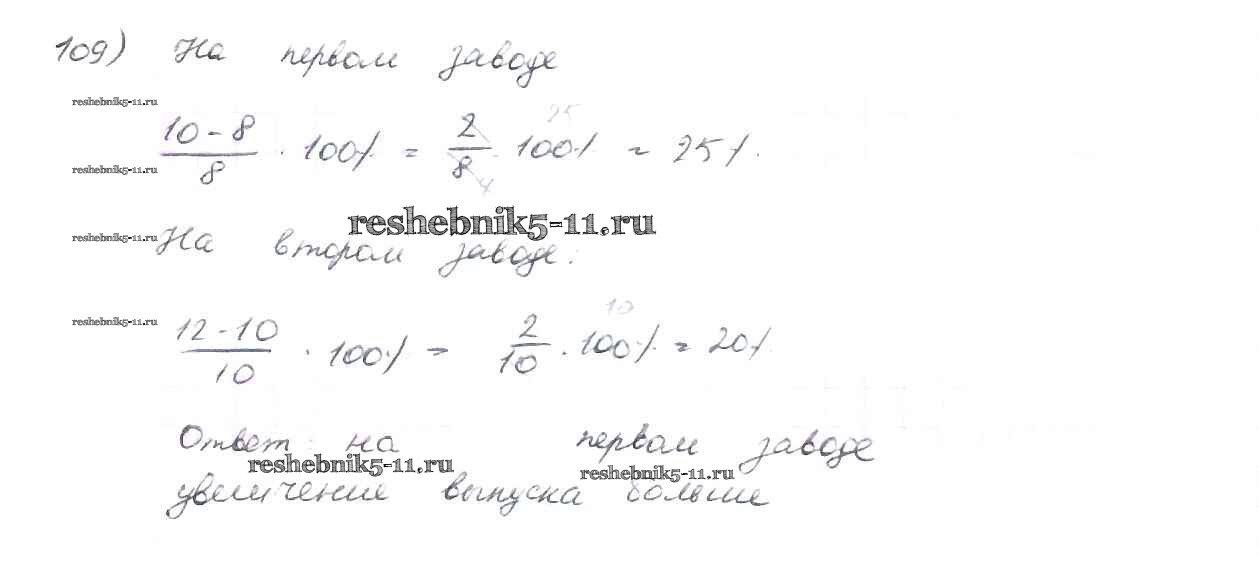 109) На первом заводе
reshebnik5-11.ru
10-8/8 · 100% = 2/8 · 100% = 25%.
25
4
reshebnik5-11.ru
reshebnik5-11.ru
reshebnik5-11.ru
На втором заводе:
reshebnik5-11.ru
12-10/10 · 100% = 2/10 · 100% = 20%
10
Ответ на первом заводе
reshebnik5-11.ru
reshebnik5-11.ru
увеличение выпуска больше